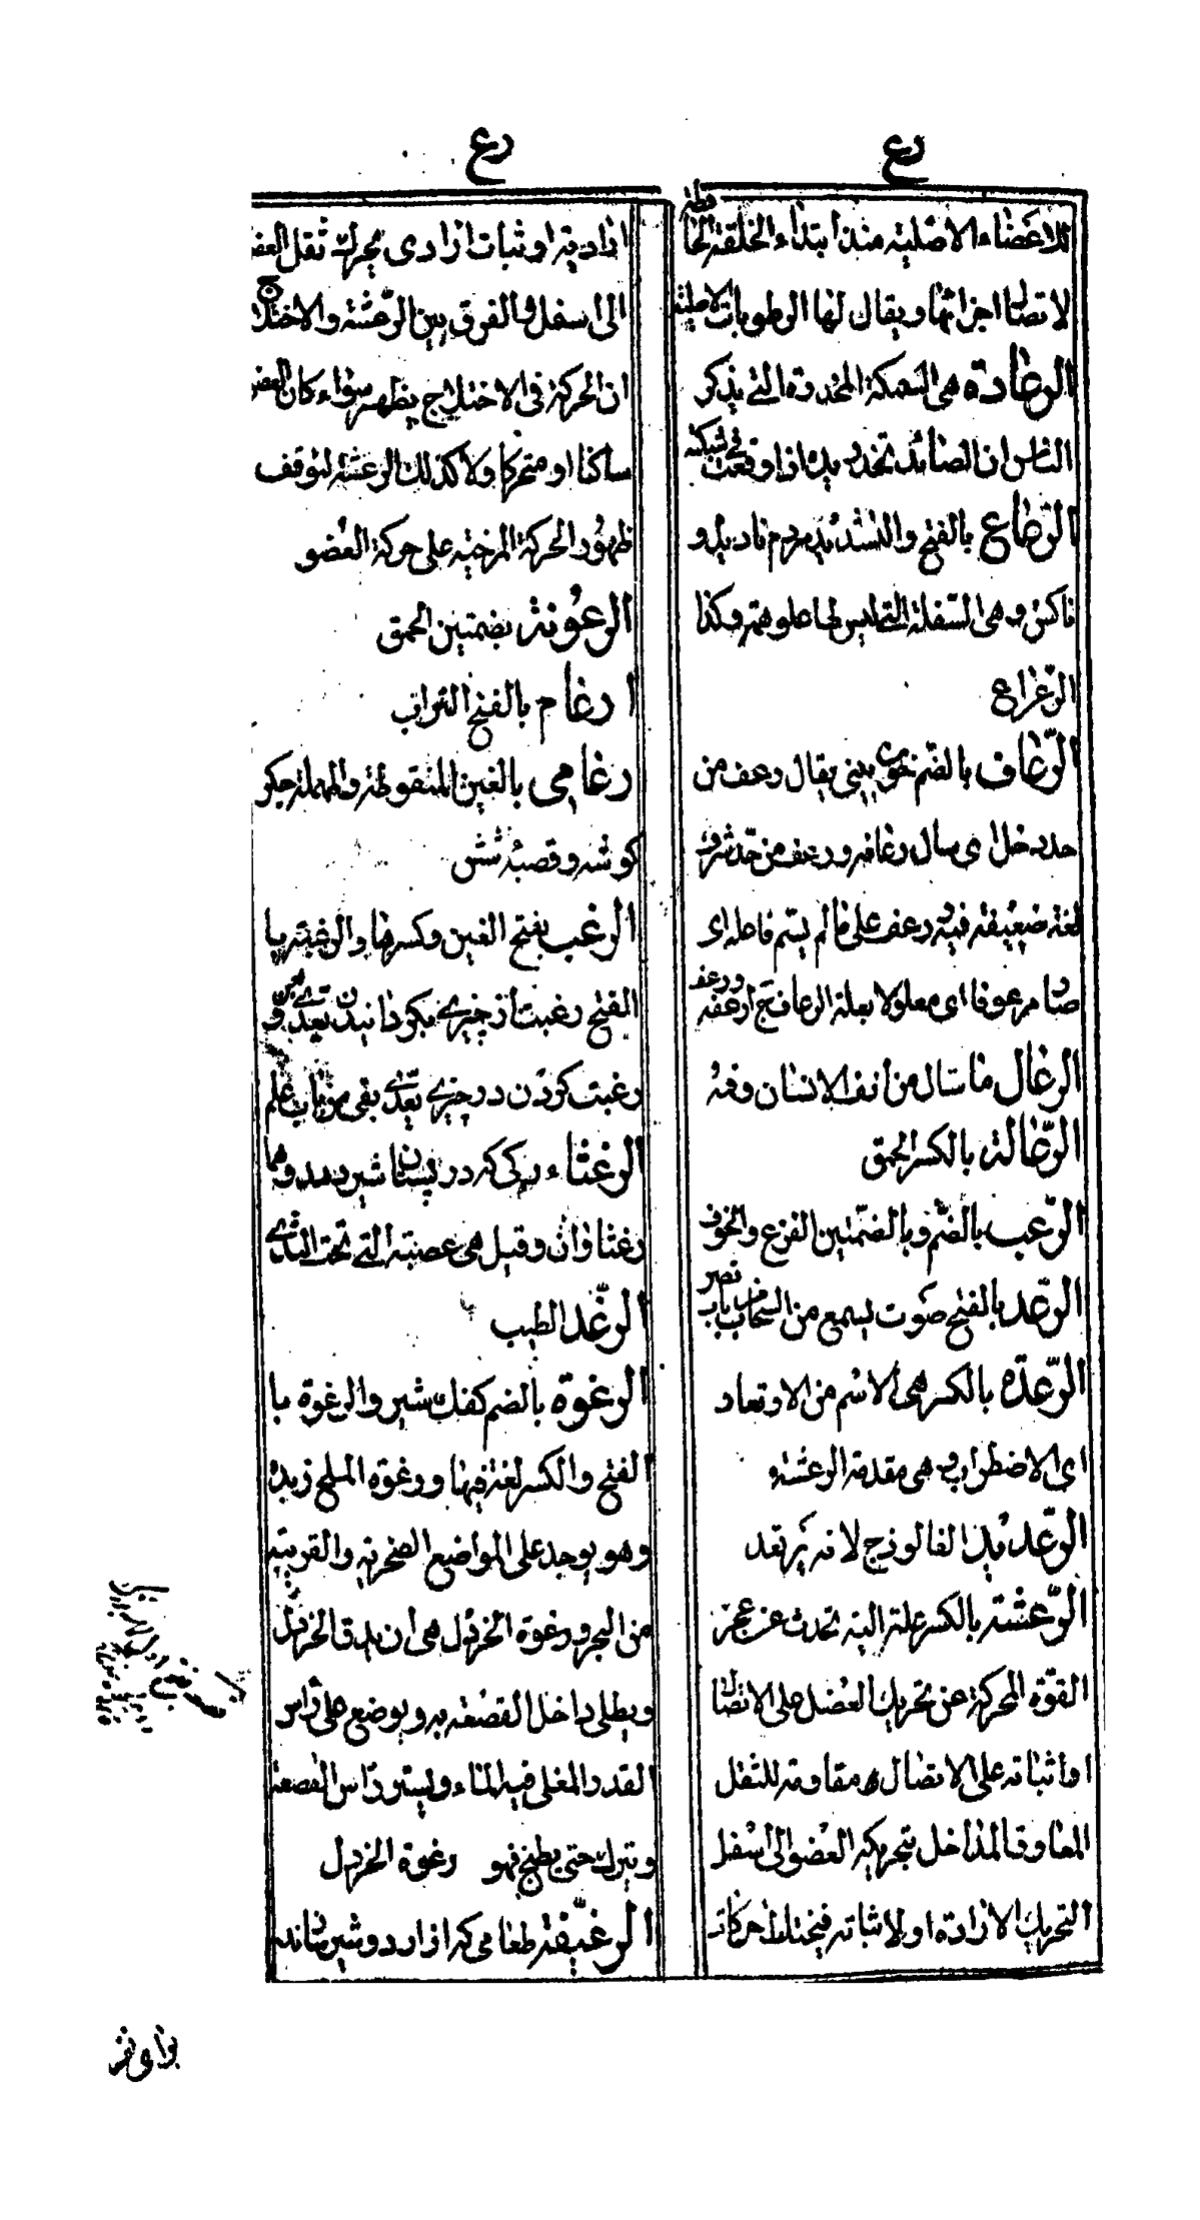 رع
للاعضاء الاصلية منذ ابتداء الخلقة الحافظة
لاتصال اجزائها و يقال لها الرطوبات الاصلية
الرعادة هى السمكة المخدرة التي يذكر
الناس ان الصائد تخدر يده اذا وقعت في شبكته
الرعاع بالفتح والتشديد مردم نا ديده و
ناكس و هى السفلة التي ليس لها علو همة وكذا
الرعراع
الرعاف بالضم خون بينى يقال رعف من
حد دخل اى سال رعافه و رعف من حد شرف
لغة ضعيفة فيه و رعف على ما لم يسم فاعله اى
صار مرعوفا اى معلولا بعلة الرعاف ج ارعفة و رعف
الرعال ما سال من انف الانسان وفمه
الرعالة بالكسر الحمق
الرعب بالضم و بالضمتين الفزع والخوف
الرعد بالفتح صوت يسمع من السحاب من باب نصر
الرعدة بالكسر هى الاسم من الارتعاد
اى الاضطراب و هى مقدمة الرعشة
الرعديد الفالوذج لانه يرتعد
الرعشة بالكسر علة الية تحدث عن عجز
القوة المحركة عن تحريك العضل على الاتصال
او اثباته على الاتصال مقاومة للثقل
المعاوق المداخل بتحريكه العضو الى اسفل
التحريك الارادة او لا ثباته فيختلط حركات
رع
ارادية او ثبات ارادى بحركة ثقل العضو
الى اسفل و الفرق بين الرعشة و الاختلاج
ان الحركة فى الاختلاج يظهر سواء كان العضو
ساكنا او متحركا ولا كذلك الرعشة لتوقف
ظهور الحركة المرضية على حركة العضو
الرعونة بضمتين الحمق
رغام بالفتح التراب
رغامى بالغين المنقوطة والمهملة جكر
كوشه و قصبۀ شش
الرغب بفتح الغين و كسرها و الرغبة با
الفتح رغبت از چيزے بگردانيدن تعديۀ بعن و
رغبت كردن در چيزے تعديۀ بفى من باب علم
الرغثاء رگى كه در پستان شير دهد و هما
رغثاوان و قيل هى عصبة التي تحت الثدے
الرغد الطيب
الرغوة بالضم كفك شير و الرغوة با
الفتح و الكسر لغة فيها و رغوة الملح زبده
و هو يوجد على المواضع الصخرية و القريبة
من البحر و رغوة الخردل هى ان يدق الخردل
و يطلى داخل القصعة به و يوضع على راس
القدر المغلى فيه الماء و يستر راس القصعة
و يترك حتى يطبخ فهو رغوة الخردل
الرغيفة طعامى كه از آرد و شير سازند